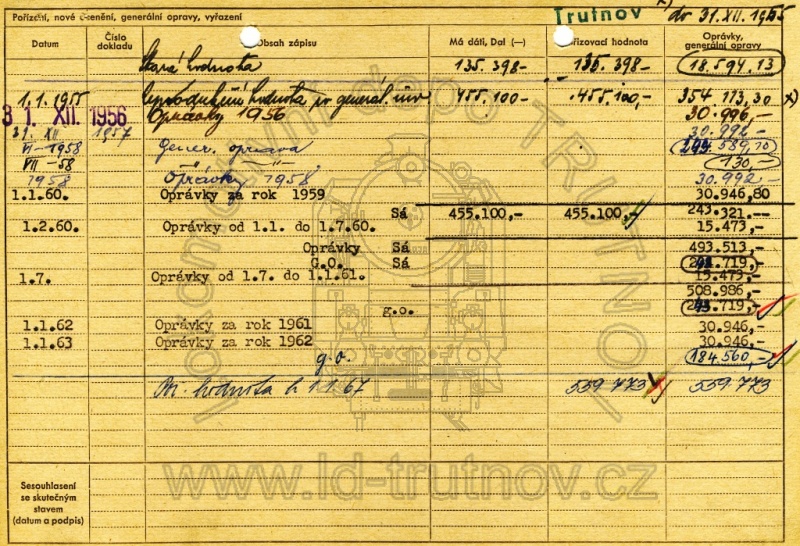 Pořízení, nové ocenění, generální opravy, vyřazení
Trutnov
x) do 31.XII.1955
Datum Číslo dokladu Obsah zápisu Má dáti, Dal (—) Pořizovací hodnota Oprávky, generální opravy
Stará hodnota 135.398- 135.398- 18.594.13
1.1.1955 hodnota po generál. 455.100- 455.100,- 354 773,30 x)
31. XII. 1956 Oprávky 1956 30.996,-
31. XII 1957 30.992-
VI-1958 Gener. oprava 589,70
VII-58 —"— 130,-
1958 Oprávky 1958 30.992,-
1.1.60. Oprávky za rok 1959 30.946,80
Sá 455.100,- 455.100,- 243.321.--
1.2.60. Oprávky od 1.1. do 1.7.60. 15.473,-
Oprávky Sá 493.513,-
G.O. Sá 719,-
1.7. Oprávky od 1.7. do 1.1.61. 15.473,-
508.986,-
g.o. 719,-
1.1.62 Oprávky za rok 1961 30.946,-
1.1.63 Oprávky za rok 1962 30.946,-
g.o. 184.560,-
hodnota k 1.1.67 559.773 559.773
Sesouhlasení se skutečným stavem (datum a podpis)
Lokomotivní depo TRUTNOV
www.ld-trutnov.cz